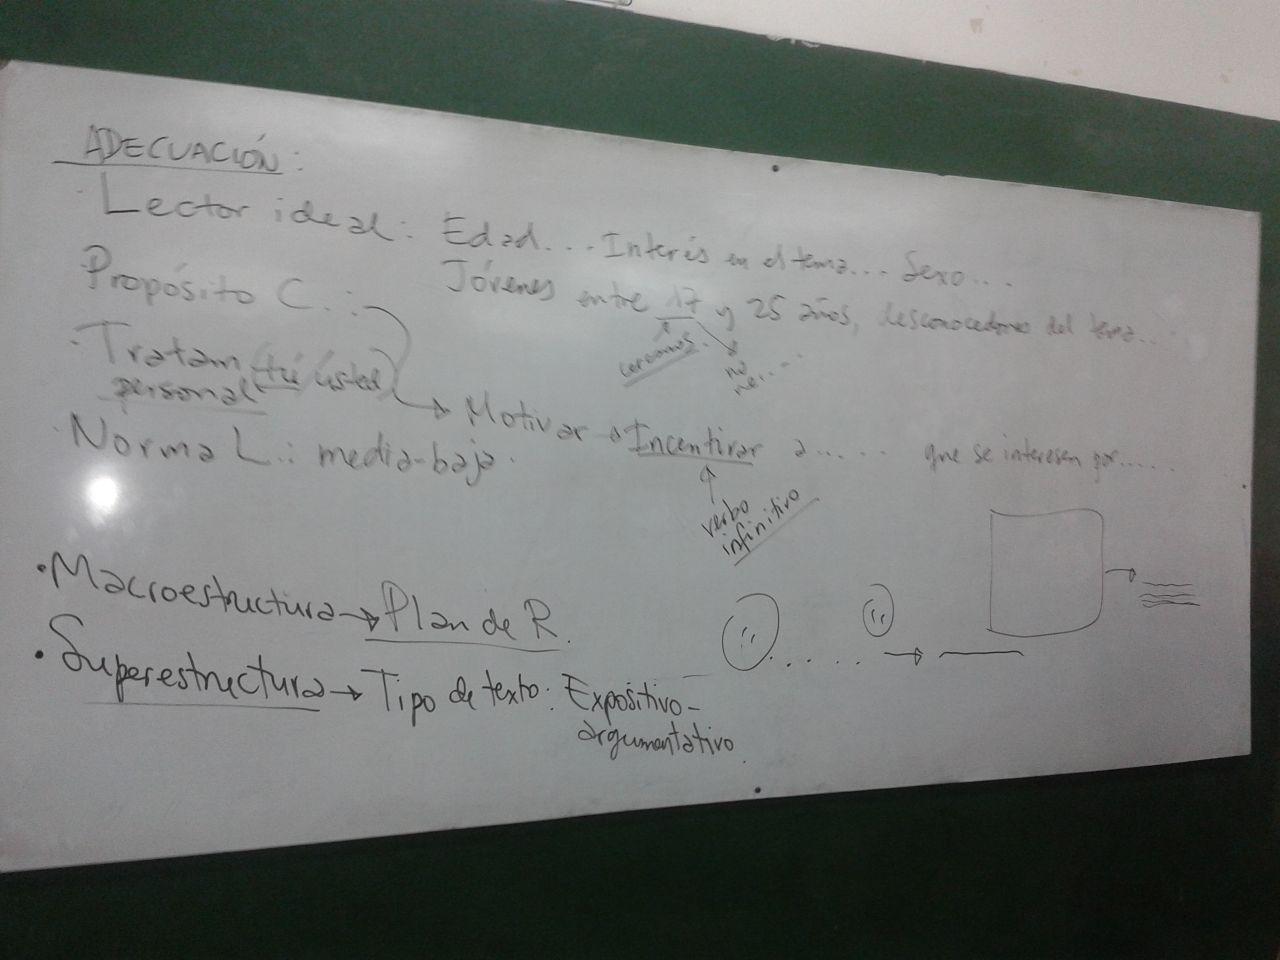 ADECUACIÓN:
· Lector ideal: Edad... Interés en el tema... Sexo...
Jóvenes entre 17 y 25 años, desconocedores del tema...
Propósito C.:
· Tratam (tú ústed)
personal
→ Motivar → Incentivar a..... que se interesen por......
verbo
infinitivo
· Norma L.: media-baja.
• Macroestructura → Plan de R.
• Superestructura → Tipo de texto: Expositivo-
argumentativo.